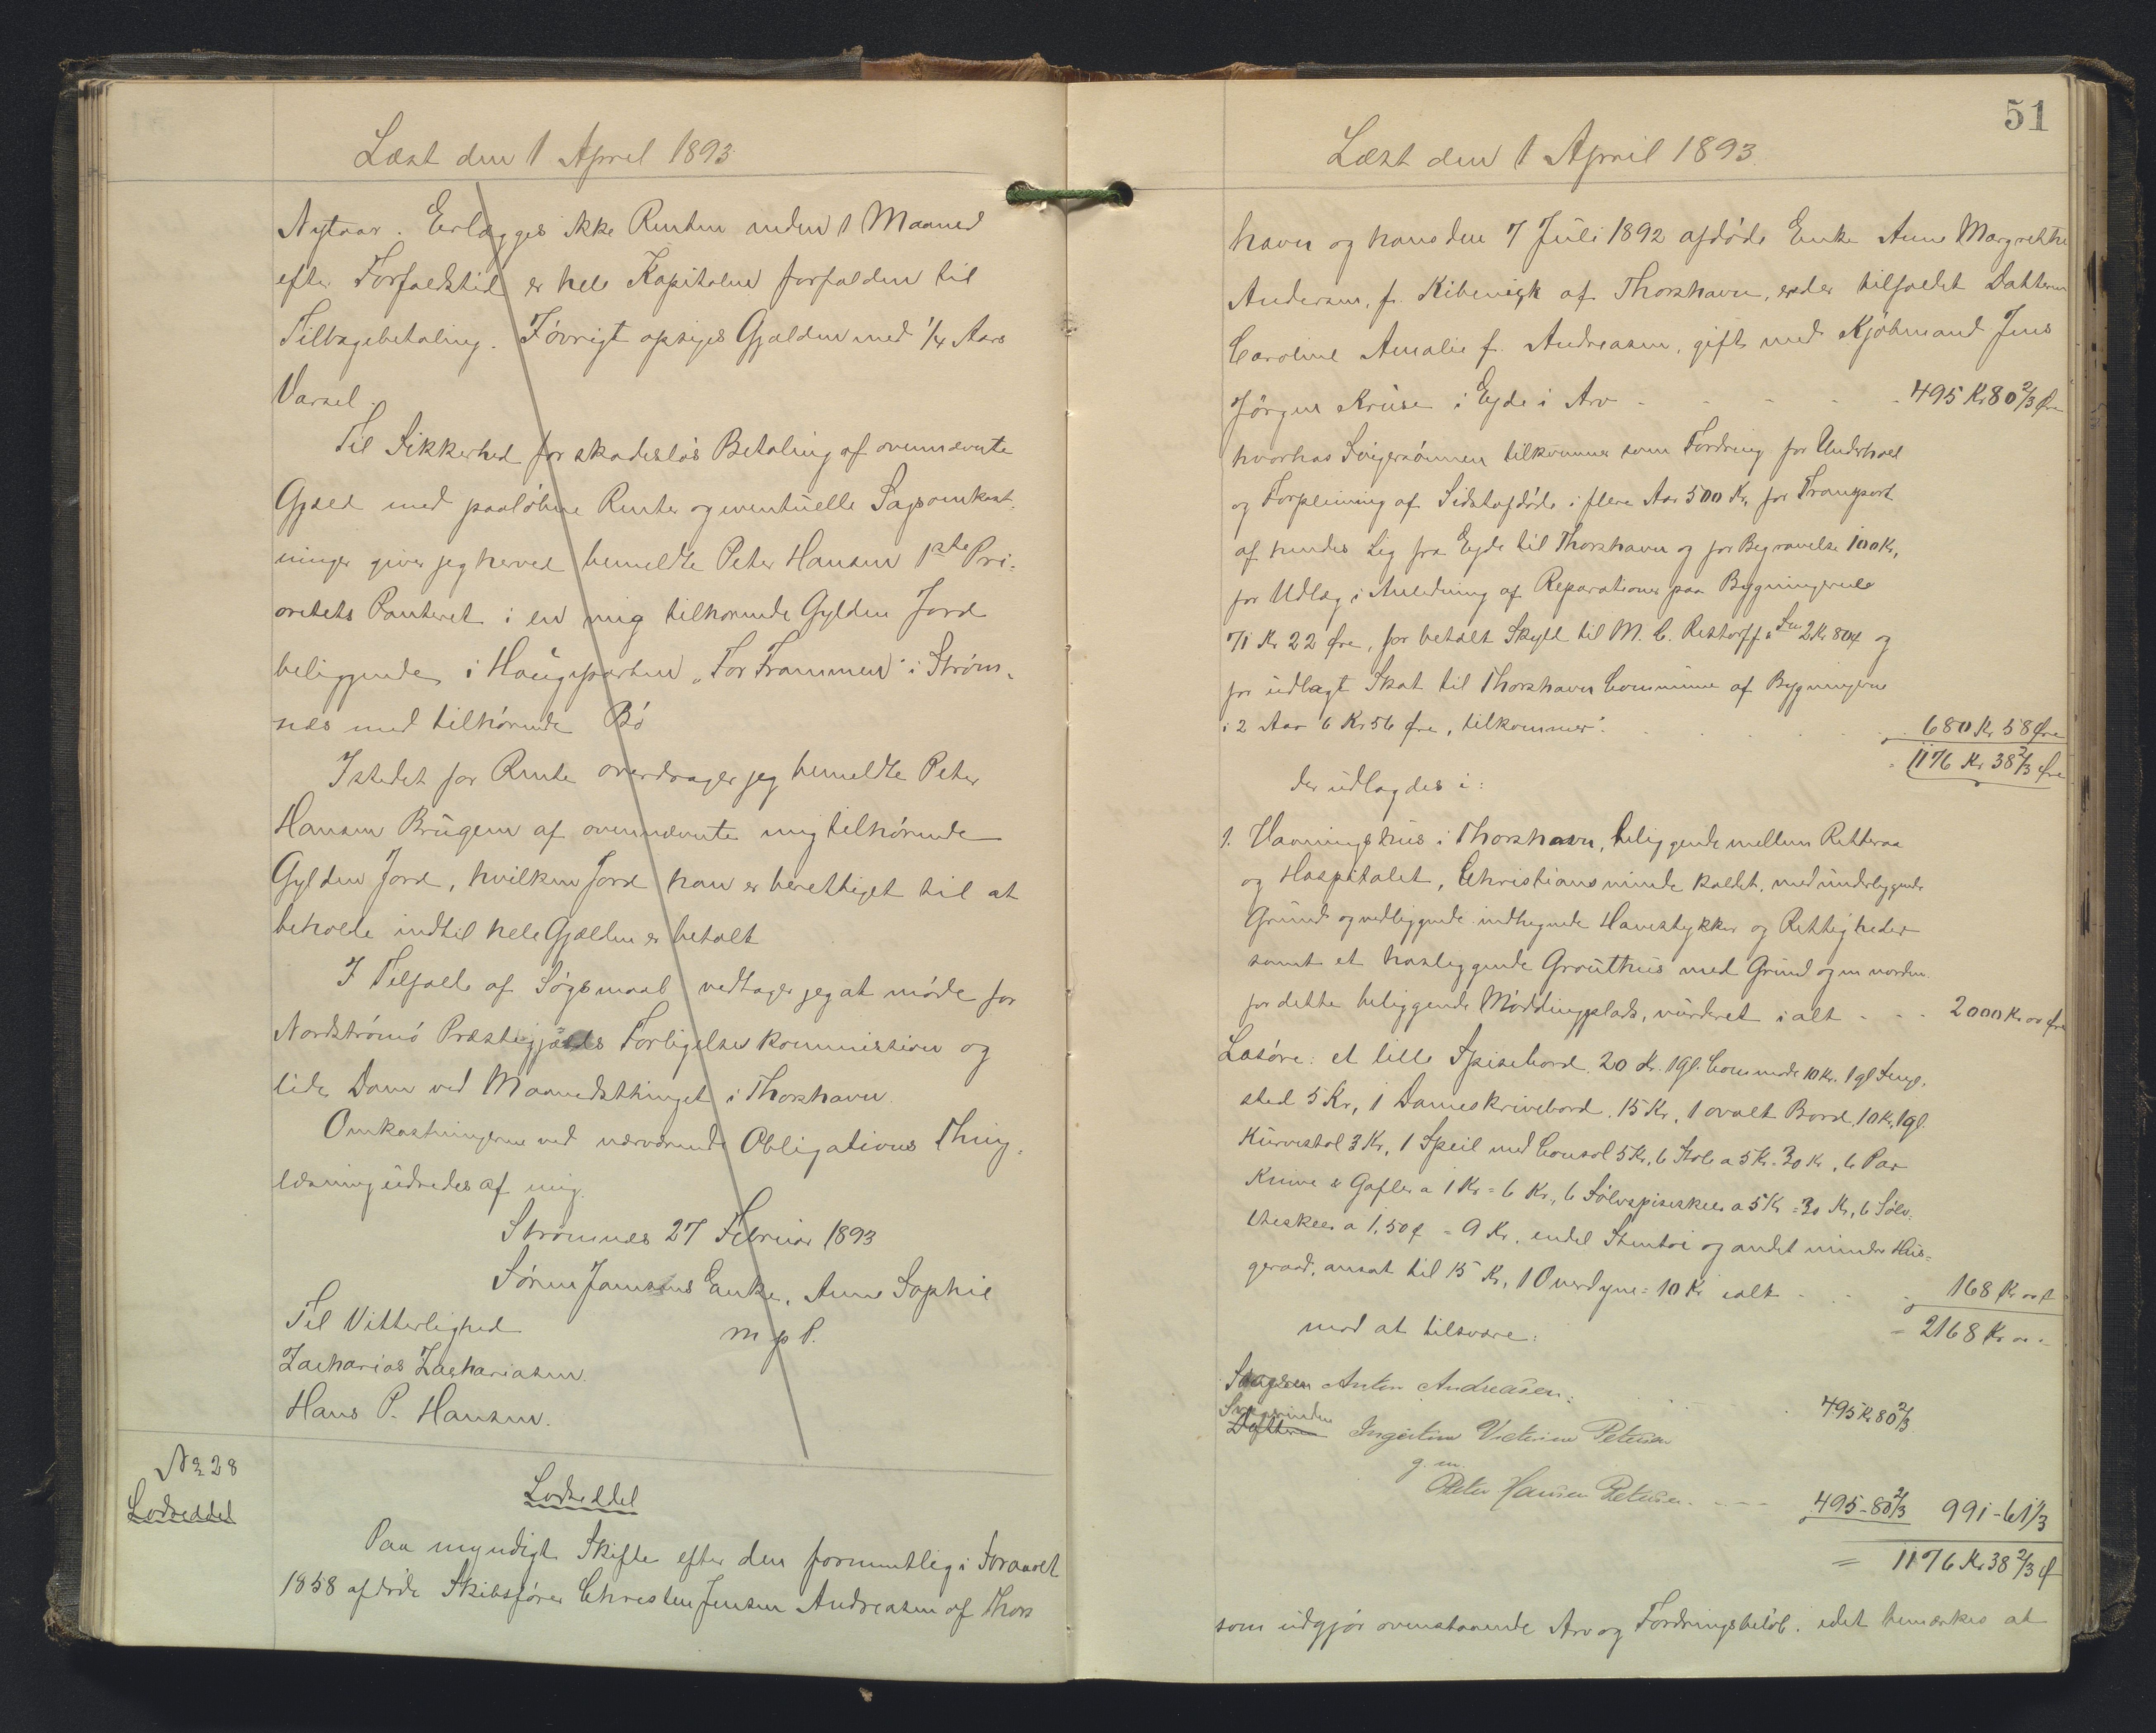 Læst den 1 April 1893
Nytaar. Erlægges ikke Renten inden 1 Maaned
efter Forfaldstid er hele Kapitalen forfalden til
Tilbagebetaling. Iøvrigt opsiges Gjælden med 1/4 Aars
Varsel.
Til Sikkerhed for skadesløs Betaling af ovennævnte
Gjæld med paaløbne Renter og eventuelle Sagsomkost-
ninger giver jeg herved bemeldte Peter Hansen 1ste Pri-
oritets Panteret i en mig tilhørende Gylden Jord
beliggende i Haugsparten "For Frammen" i Strøm-
næs med tilhørende Bø
Istedet for Rente overdrager jeg bemeldte Peter
Hansen Brugen af ovennævnte mig tilhørende
Gylden Jord, hvilken Jord han er berettiget til at
beholde indtil hele Gjælden er betalt
I Tilfælde af Søgsmaal vedtager jeg at møde for
Nordstrømø Præstegjælds Forligelseskommission og
lide Dom ved Maanedsthinget i Thorshavn.
Omkostningerne ved nærværende Obligations Thing-
læsning udredes af mig.
Strømnæs 27 Februar 1893
Søren Jansens Enke, Anne Sophie
Til Vitterlighed m p P.
Zacharias Zachariasen.
Hans P. Hansen.
No 28
Lodseddel
Lodseddel
Paa myndigt Skifte efter den formentlig i Foraaret
1858 afdøde Skibsfører Christen Jensen Andreasen af Thors
51
Læst den 1 April 1893.
havn og hans den 7 Juli 1892 afdøde Enke Anne Margrethe
Andersen, f. Kibenigk af Thorshavn, er der tilfaldet Datteren
Caroline Amalie f. Andreasen, gift med Kjøbmand Jens
Jørgen Kruse i Ejde i Arv - - - - - 495 Kr 80 2/3 Øre
hvorhos Svigersønnen tilkommer som Fordring for Underhold
og Forpleining af Sidstafdøde i flere Aar 500 Kr, for Transport
af hendes Lig fra Ejde til Thorshavn og for Begravelse 100 Kr,
for Udlæg i Anledning af Reparationer paa Bygningerne
71 Kr 22 Øre, for betalt Skyld til M. C. Restorff & Søn 2 Kr 80 Ø og
for udlagt Skat til Thorshavn Commune af Bygningerne
i 2 Aar 6 Kr 56 Øre, tilkommer: 680 Kr 58 Øre
= 1176 Kr 38 2/3 Øre
der udlagdes i:
1. Vaaningshus i Thorshavn, beliggende mellem Retteraa
og Hospitalet, Christiansminde kaldet, med underliggende
Grund og vedliggende indhegnede Havestykker og Rettigheder
samt et hosliggende Grouthus med Grund og en norden
for dette beliggende Møddingplads, vurderet i alt - - - 2000 Kr 00 Øre
Løsøre: et lille Spisebord 20 Kr. 1 gl. Commode 10 Kr. 1 gl Senge-
sted 5 Kr, 1 Dameskrivebord 15 Kr, 1 ovalt Bord 10 Kr, 1 gl.
Kurvestol 3 Kr, 1 Speil med Consol 5 Kr, 6 Stole a 5 Kr = 30 Kr, 6 Par
Knive & Gafler a 1 Kr = 6 Kr, 6 Sølvspiseskeer a 5 Kr = 30 Kr, 6 Sølv-
theskeer a 1,50 Ø = 9 Kr. endel Stentøi og andet mindre Hus-
geraad, ansat til 15 Kr, 1 Overdyne = 10 Kr ialt - - - 168 Kr 00 Ø
= 2168 Kr 00 -
mod at tilsvare:
Svogeren Anton Andreasen: 495 Kr 80 2/3
Svigerinden
Datteren Ingertine Victorine Petersen
g. m.
Peter Hansen Petersen. - - - 495 - 80 2/3 991 - 61 1/3
= 1176 Kr 38 2/3 Ø
som udgjør ovenstaaende Arv og Fordringsbeløb, idet bemærkes at